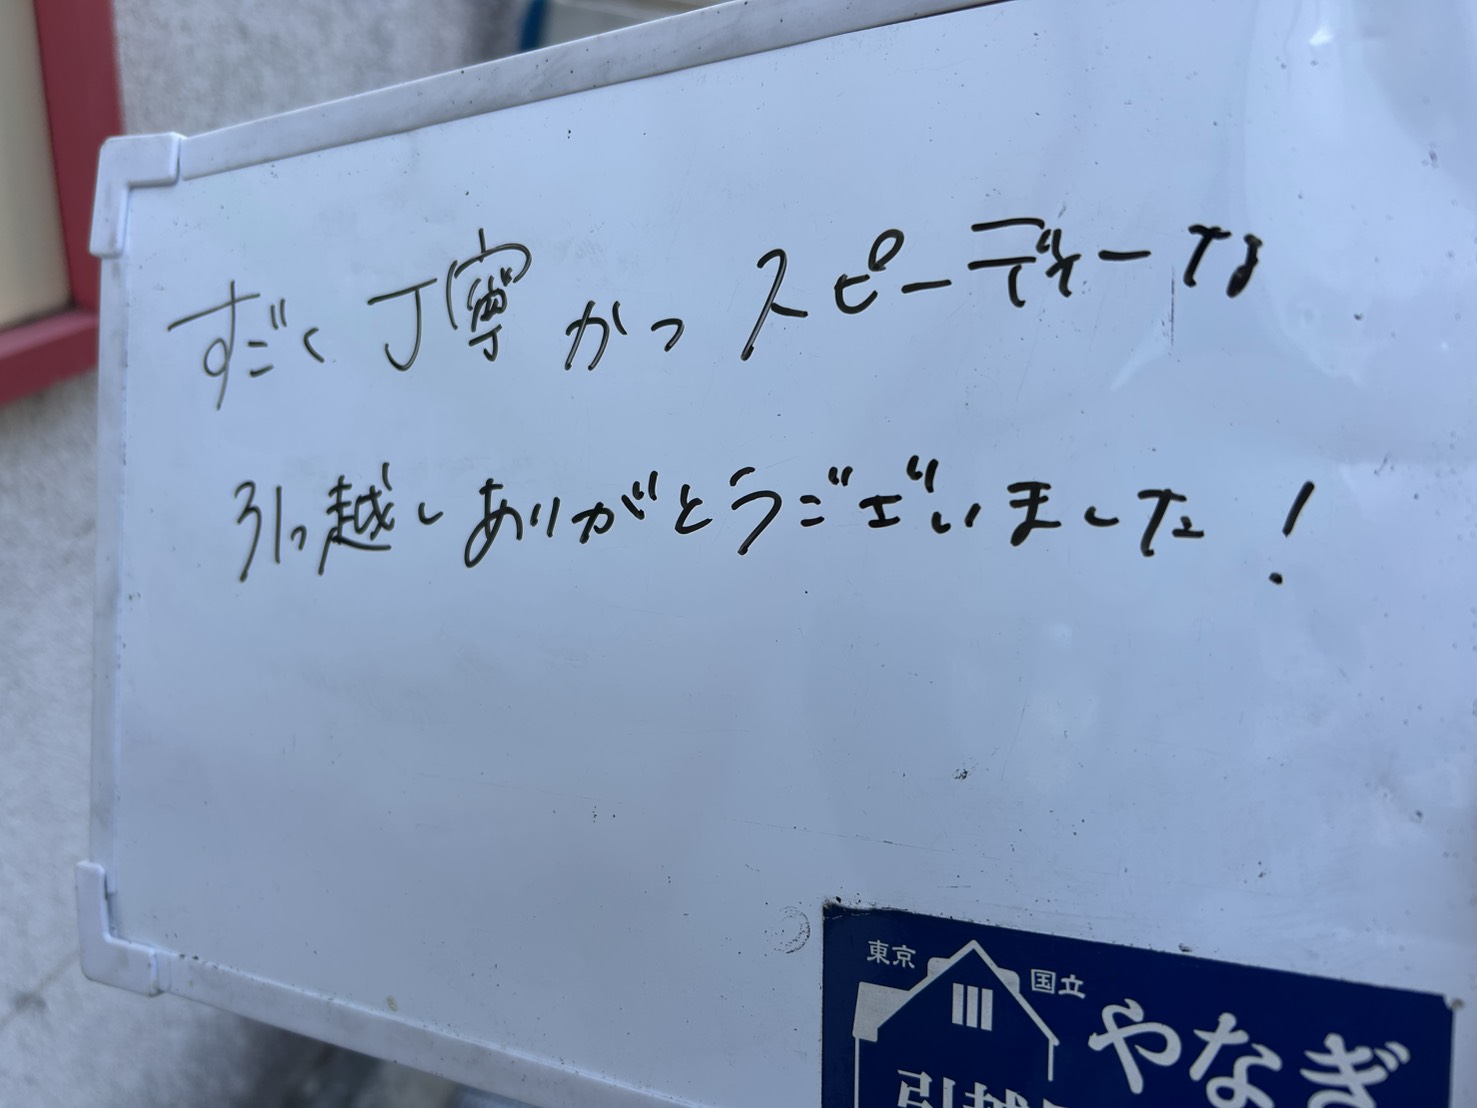 すごく 丁寧 かつ スピーディーな
引っ越しありがとうございました!
東京
国立
やなぎ
引越